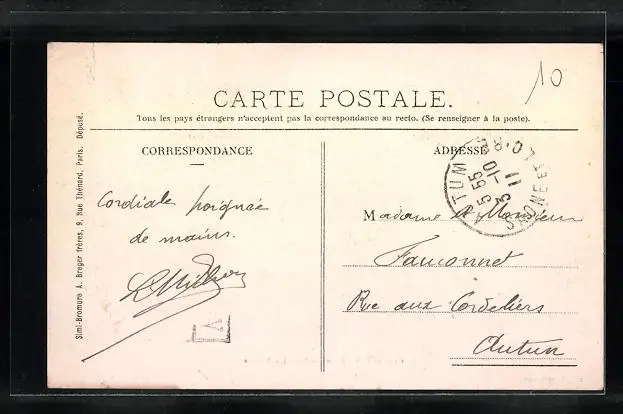 10
CARTE POSTALE.
Tous les pays étrangers n'acceptent pas la correspondance au recto. (Se renseigner à la poste).
CORRESPONDANCE
ADRESSE
Simi-Bromure A. Breger frères, 9, Rue Thénard, Paris. Déposé.
Cordiale poignée
de mains.
Madame et Monsieur
Fauconnet
Rue aux Cordeliers
Autun
A